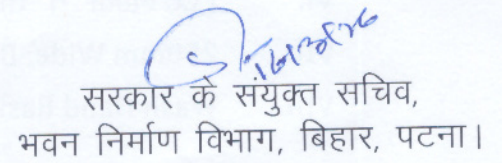 सरकार के संयुक्त सचिव,
भवन निर्माण विभाग, बिहार, पटना।